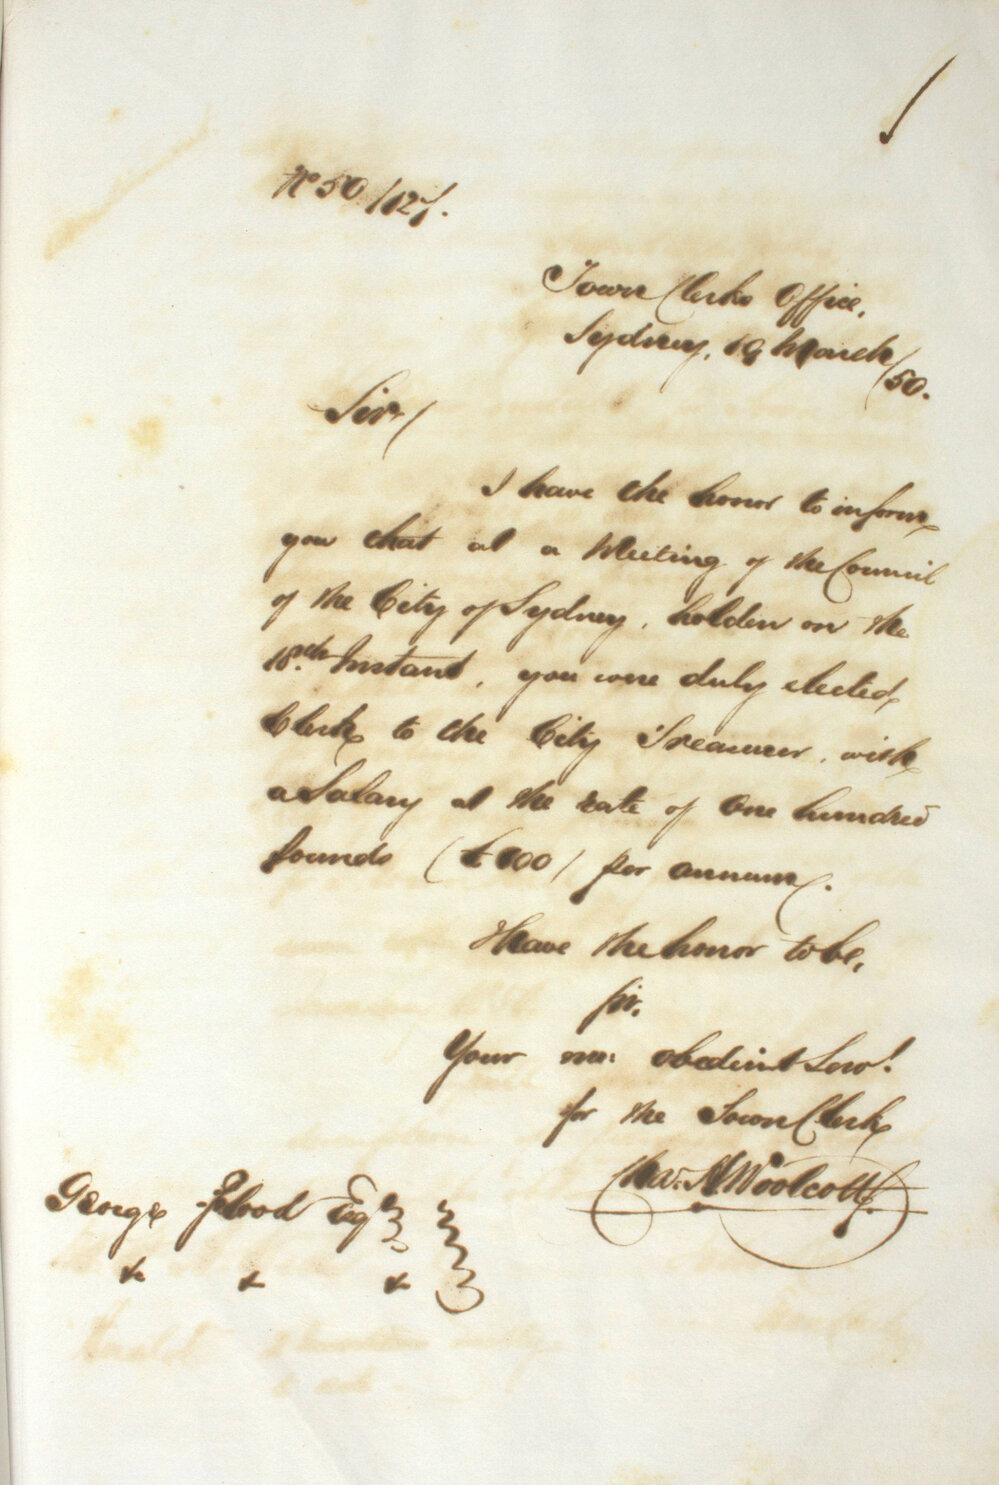 No 50/127.
Town Clerks Office,
Sydney, 19 March
/50.
Sir/
I have the honor to inform
you that at a Meeting of the Council
of the City of Sydney, holden on the
18th Instant, you were duly elected
Clerk to the City Treasurer, with
a Salary at the rate of One hundred
pounds (£100) per annum.
I have the honor to be,
Sir,
Your mo: obedient Serv!
for the Town Clerk
Chas. H Woolcott.
George Flood Esqre
&c &c &c